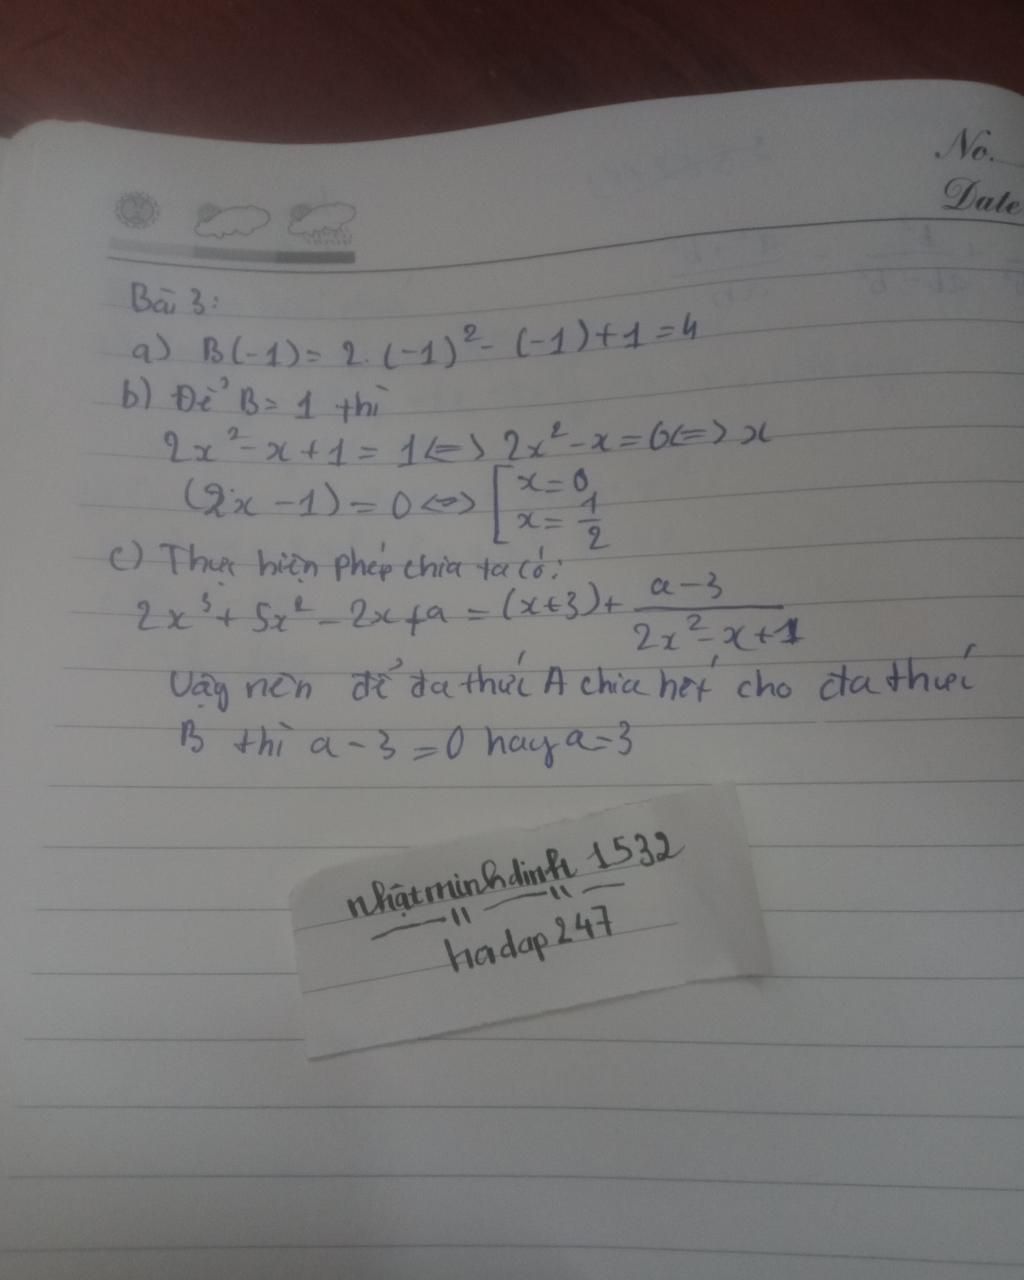 No.
Date
Bài 3:
a) B(-1) = 2. (-1)² - (-1) + 1 = 4
b) Để B = 1 thì
2x² - x + 1 = 1 <=> 2x² - x = 0 <=> x
(2x - 1) = 0 <=> [ x = 0
x = 1/2
c) Thực hiện phép chia ta có:
2x³ + 5x² - 2x + a = (x + 3) + (a - 3)/(2x² - x + 1)
Vậy nên để đa thức A chia hết cho đa thức
B thì a - 3 = 0 hay a = 3
nhậtminhdinh 1532
hoidap 247